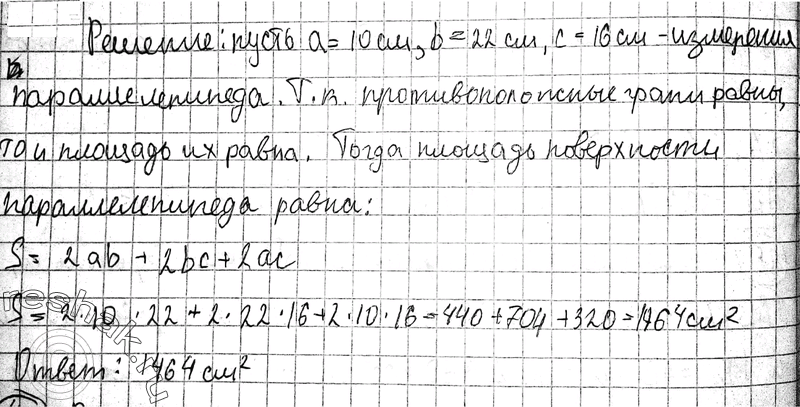 Решение: пусть a = 10 см, b = 22 см, c = 16 см - измерения
параллелепипеда. Т.к. противоположные грани равны,
то и площадь их равна. Тогда площадь поверхности
параллелепипеда равна:
S = 2ab + 2bc + 2ac
S = 2·10·22 + 2·22·16 + 2·10·16 = 440 + 704 + 320 = 1464 см²
Ответ: 1464 см²
reshak.ru